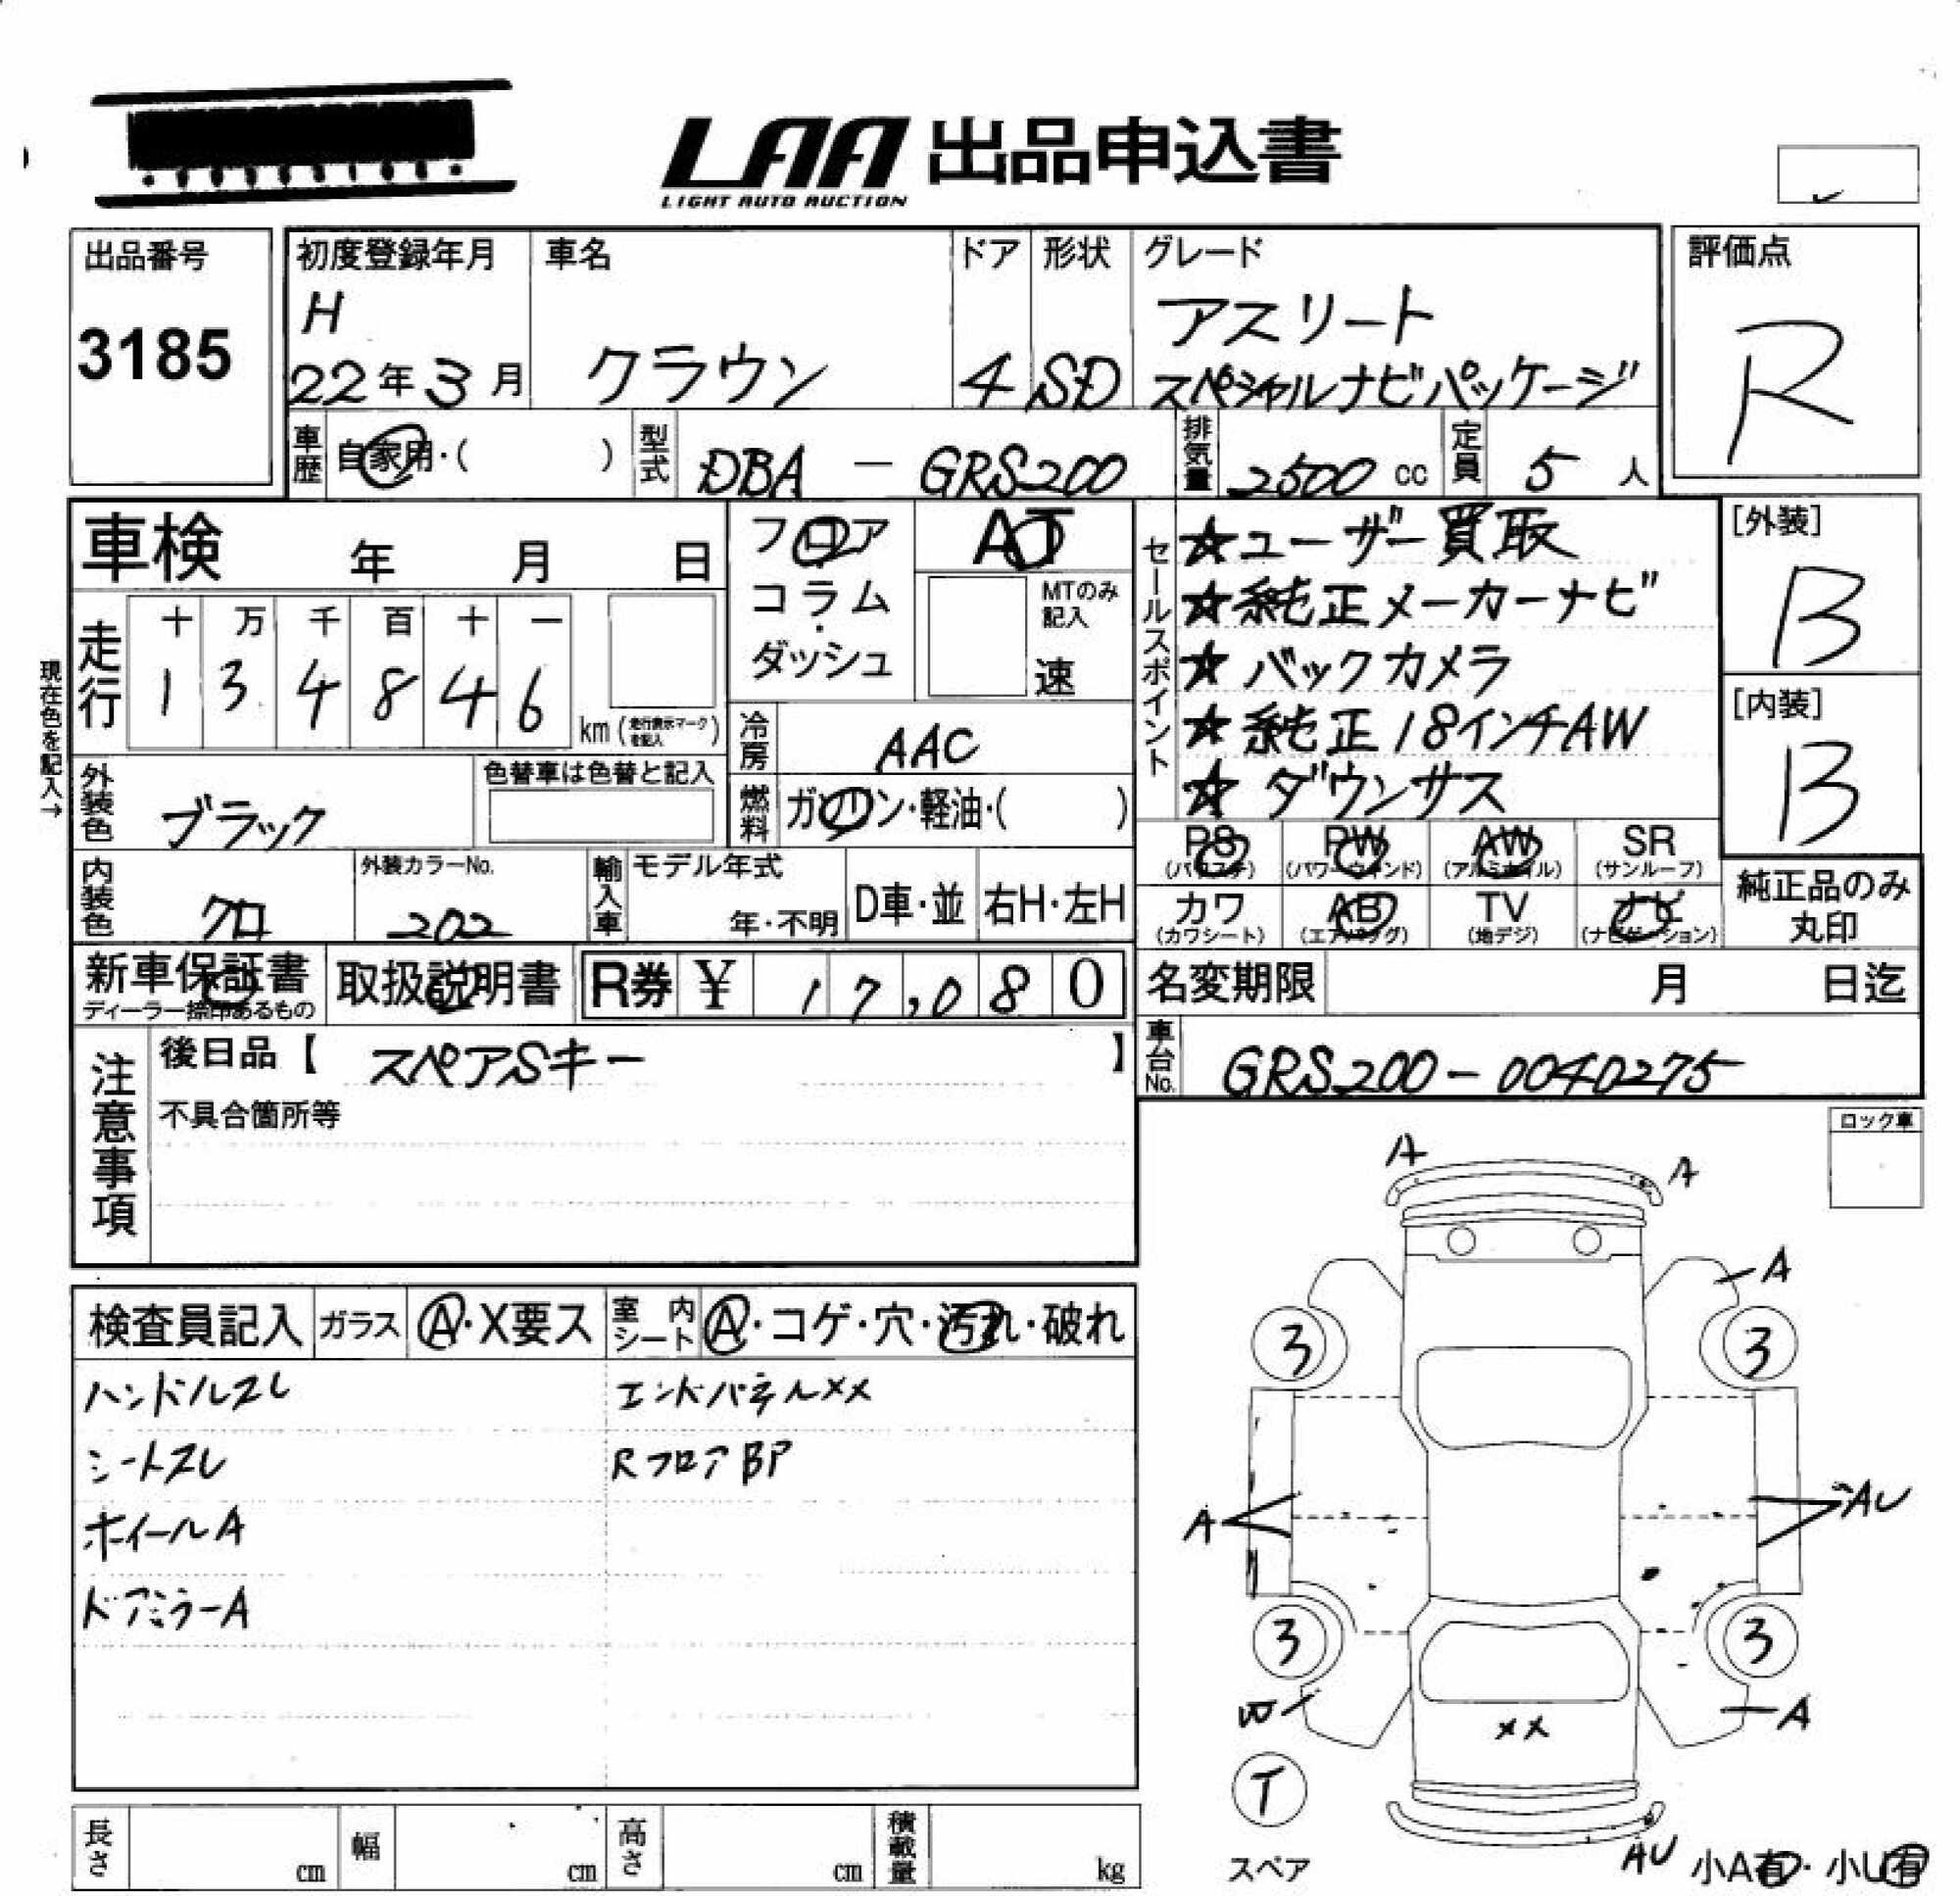 LAA 出品申込書
LIGHT AUTO AUCTION
出品番号
3185
初度登録年月
H
22年3月
車名
クラウン
ドア
4
形状
SD
グレード
アスリート
スペシャルナビパッケージ
評価点
R
車歴
自家用・( )
型式
DBA - GRS200
排気量
2500 cc
定員
5 人
車検 年 月 日
フロア
コラム
・
ダッシュ
AT
MTのみ
記入
速
セールスポイント
☆ユーザー買取
☆純正メーカーナビ
☆バックカメラ
☆純正18インチAW
☆ダウンサス
[外装]
B
[内装]
B
現在色を記入→
走行
十 万 千 百 十 一
1 3 4 8 4 6
km (走行表示マークを記入)
冷房
AAC
外装色
ブラック
色替車は色替と記入
燃料
ガソリン・軽油・( )
PS PW AW SR
(パワステ) (パワーウィンド) (アルミホイル) (サンルーフ)
カワ AB TV ナビ
(カワシート) (エアバッグ) (地デジ) (ナビゲーション)
純正品のみ
丸印
内装色
クロ
外装カラーNo.
202
輸入車
モデル年式
年・不明
D車・並
右H・左H
新車保証書
ディーラー捺印あるもの
取扱説明書
R券 ¥ 17,080
名変期限 月 日迄
車台No.
GRS200-0040275
注意事項
後日品【 スペアSキー 】
不具合箇所等
ロック車
検査員記入
ガラス
A・X要ス
室内シート
A・コゲ・穴・汚れ・破れ
ハンドルスレ
シートスレ
ホイールA
ドアミラーA
エンドパネルXX
RフロアBP
A
A
A
3
3
A
AU
3
3
W
A
XX
T
スペア
AU
小A有・小U有
長さ cm
幅 cm
高さ cm
積載量 kg